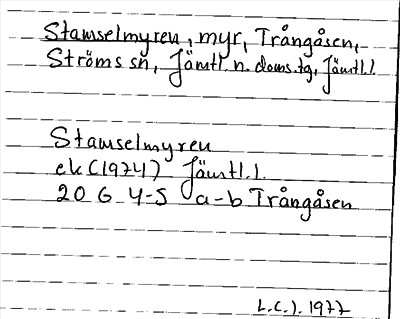 Stamselmyren, myr, Trångåsen,
Ströms sn, Jämtl. n. doms.tg, Jämtl.l.
Stamselmyren
ek (1974) Jämtl.l.
20 G 4-5 a-b Trångåsen
L.C.J. 1977